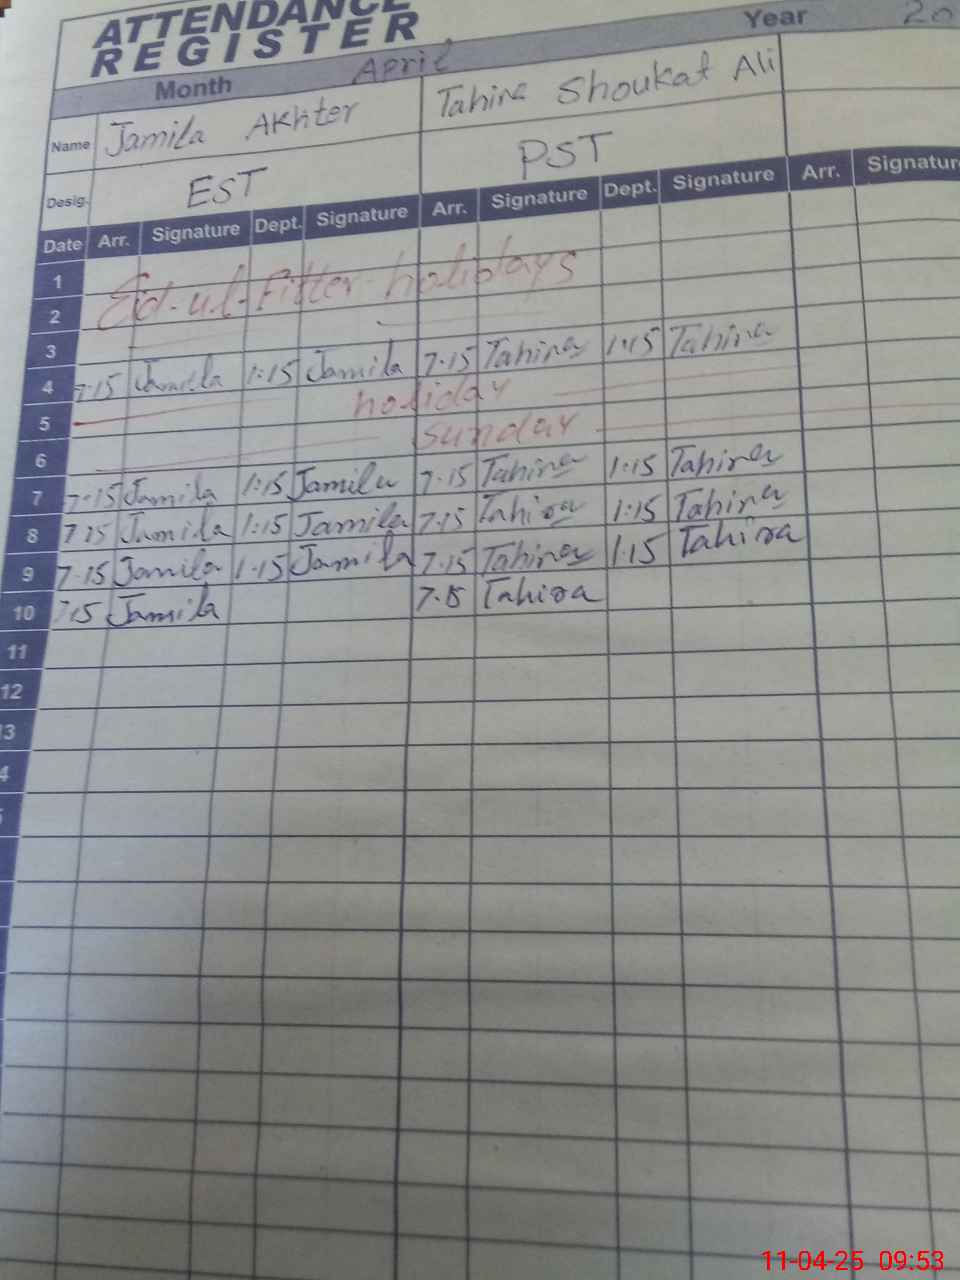 ATTENDANCE
REGISTER
Month April Year 20
Name Jamila Akhter Tahira Shoukat Ali
Desig. EST PST
Date Arr. Signature Dept. Signature Arr. Signature Dept. Signature Arr. Signature
1
Eid-ul-Fitter holidays
2
3
4 7:15 Jamila 1:15 Jamila 7:15 Tahira 1:15 Tahira
5 holiday
6 sunday
7 7:15 Jamila 1:15 Jamila 7:15 Tahira 1:15 Tahira
8 7:15 Jamila 1:15 Jamila 7:15 Tahira 1:15 Tahira
9 7:15 Jamila 1:15 Jamila 7:15 Tahira 1:15 Tahira
10 7:15 Jamila 7:15 Tahira
11
12
3
4
11-04-25 09:53